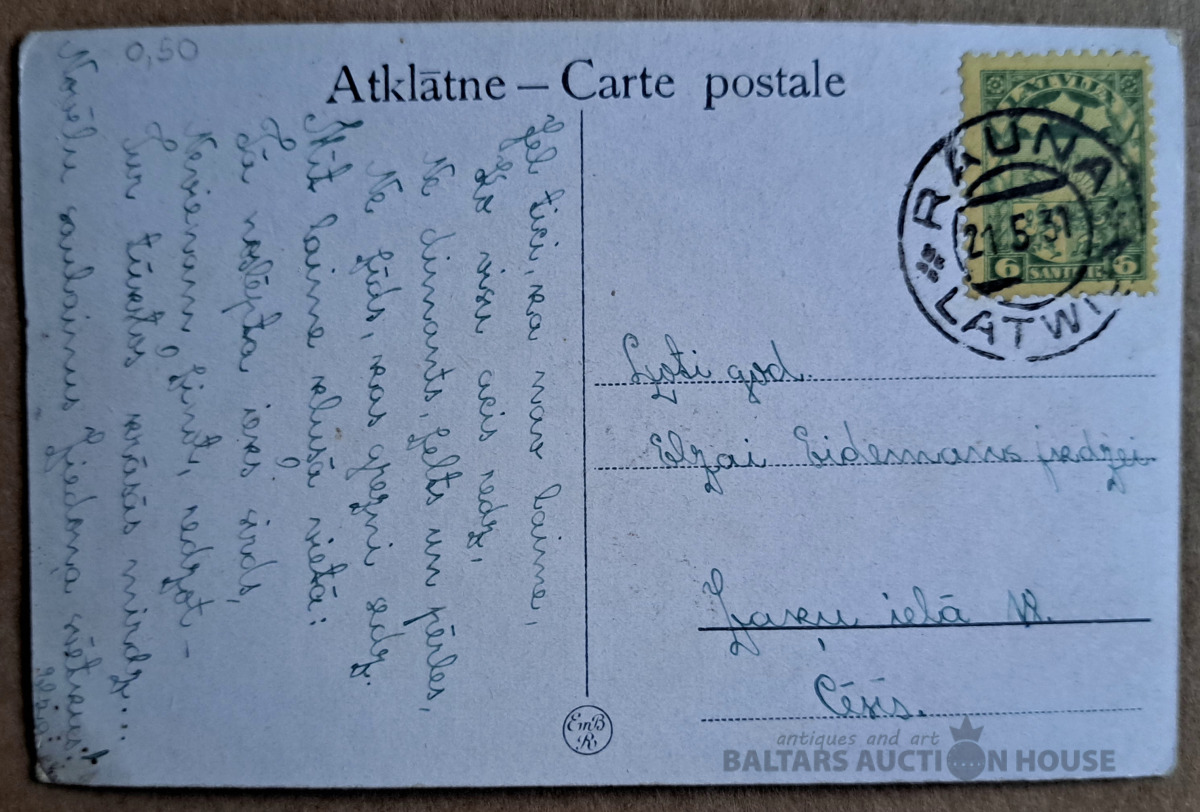 0,50
Atklātne – Carte postale
tici, ka nav laime,
Ko visu acis redz,
Ne dimants, zelts un pērles,
Ne zīds, kas grezni sedz.
Mīt laime klusā vietā:
Tā noslēpta ieks sirds,
Nevienam zināt, redzot –
Tur tūkstos krāsās mirdz...
Novēlu saulainus Ziedoņa svētkus!
LATVIJA
6 SANTIMI 6
RAUNA
21 5 31
LATWIJA
Ļoti god.
Elzai Eidemans jkdzei.
Zaķu ielā
Cēsīs.
EmB
R
antiques and art
BALTARS AUCTION HOUSE